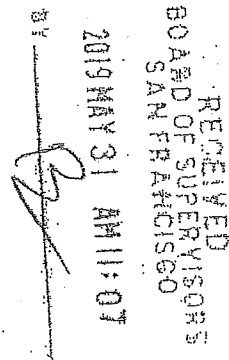 RECEIVED
BOARD OF SUPERVISORS
SAN FRANCISCO
2019 MAY 31 AM 11:07
BY